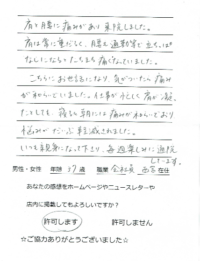 肩と腰に痛みがあり来院しました。
肩は常に重だるく、腰も通勤等で立ちっぱ
なしになるとたちまち痛くなっていました。
こちらにお世話になり、気がついたら痛み
が和らいでいました。仕事が忙しく肩が凝っ
たとしても、寝たら朝には痛みが和らいでおり
悩みがだいぶ軽減されました。
いつも親身になって下さり、毎週楽しみに通院
しています。
男性・女性 年齢 37歳 職業 会社員 在住
あなたの感想をホームページやニュースレターや
店内に掲載してもよろしいですか?
許可します 許可しません
☆ご協力ありがとうございました☆